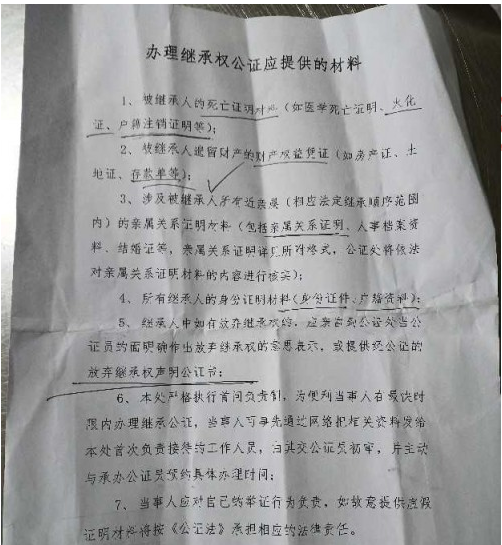 办理继承权公证应提供的材料
1、被继承人的死亡证明材料（如医学死亡证明、火化
证、户籍注销证明等）；
2、被继承人遗留财产的财产权益凭证（如房产证、土
地证、存款单等）；
3、涉及被继承人所有近亲属（相应法定继承顺序范围
内）的亲属关系证明材料（包括亲属关系证明、人事档案资
料、结婚证等，亲属关系证明详见所附格式，公证处将依法
对亲属关系证明材料的内容进行核实）；
4、所有继承人的身份证明材料（身份证件、户籍资料）；
5、继承人中如有放弃继承权的，应亲自到公证处当公
证员的面明确作出放弃继承权的意思表示，或提供经公证的
放弃继承权声明公证书；
6、本处严格执行首问负责制，为便利当事人在最快时
限内办理继承公证，当事人可事先通过网络把相关资料发给
本处首次负责接待的工作人员，由其交公证员初审，并主动
与承办公证员预约具体办理时间；
7、当事人应对自己的举证行为负责，如故意提供虚假
证明材料将按《公证法》承担相应的法律责任。